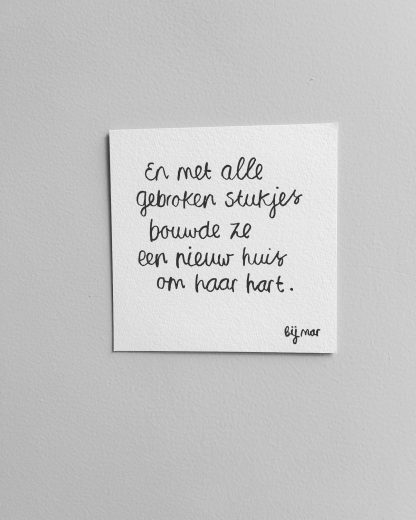 En met alle
gebroken stukjes
bouwde ze
een nieuw huis
om haar hart.
bij mar